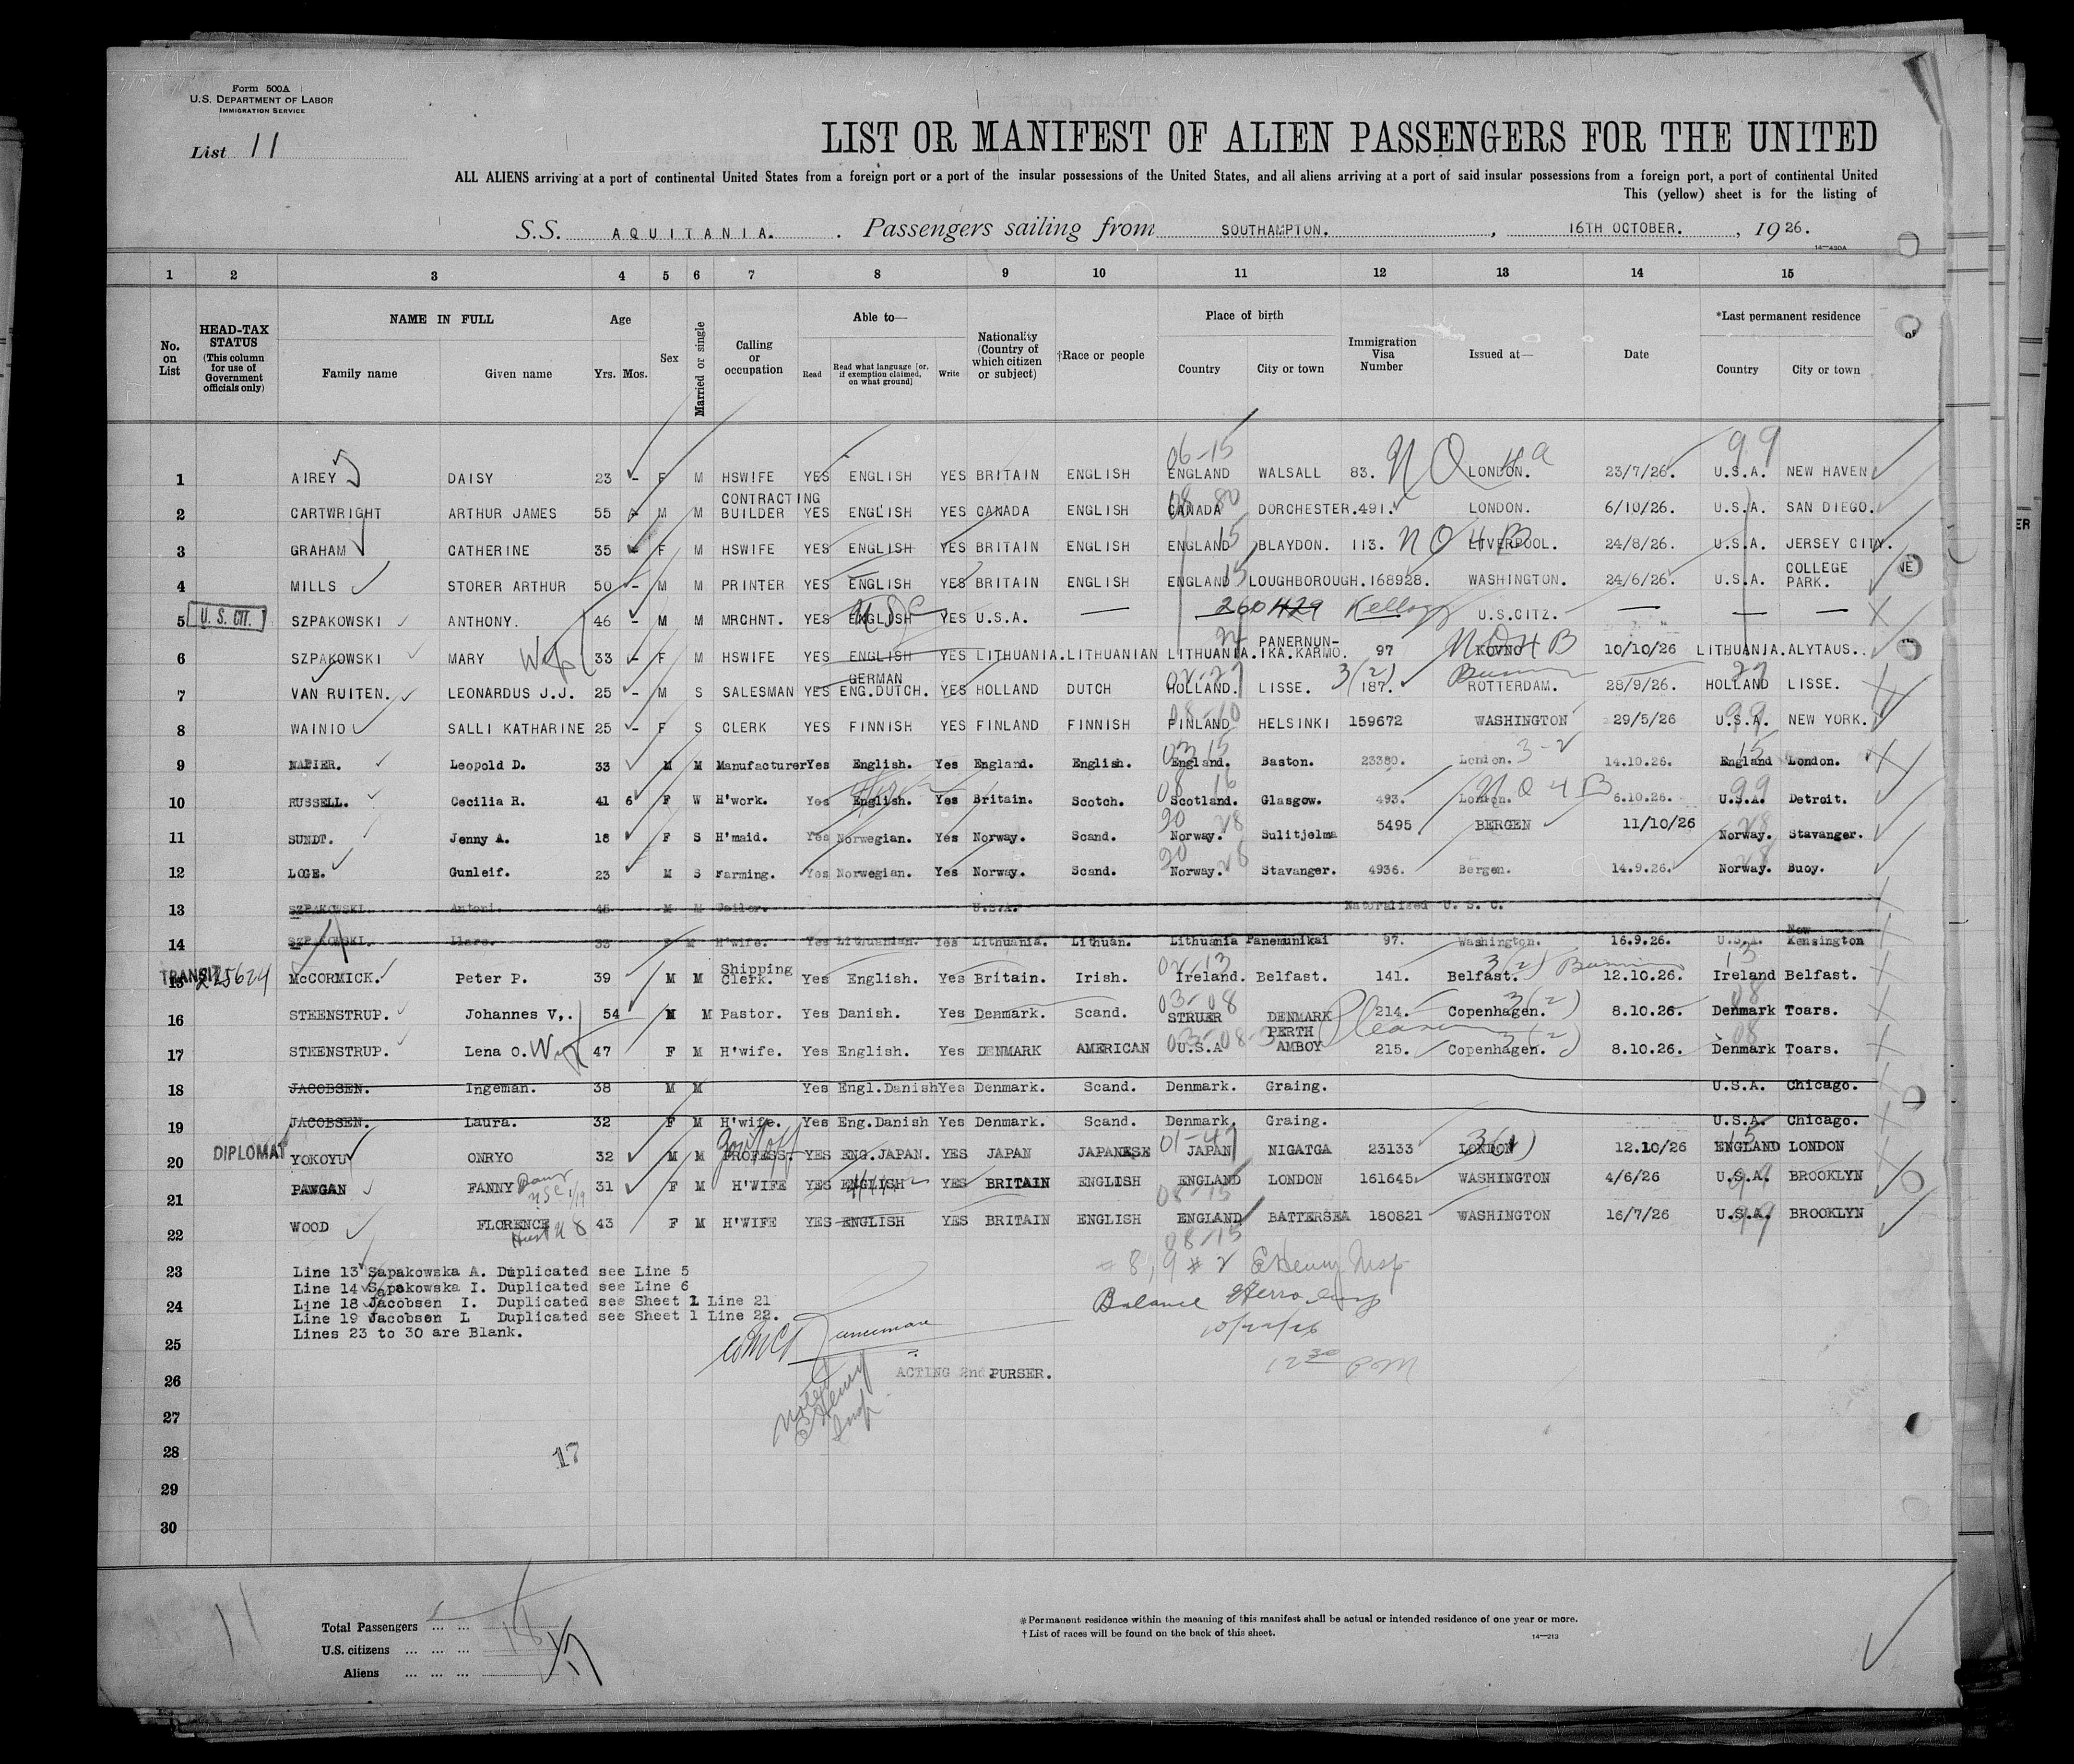 Form 500A
U.S. DEPARTMENT OF LABOR
IMMIGRATION SERVICE
List 11
LIST OR MANIFEST OF ALIEN PASSENGERS FOR THE UNITED
ALL ALIENS arriving at a port of continental United States from a foreign port or a port of the insular possessions of the United States, and all aliens arriving at a port of said insular possessions from a foreign port, a port of continental United
This (yellow) sheet is for the listing of
S.S. AQUITANIA. Passengers sailing from SOUTHAMPTON. , 16TH OCTOBER. , 1926.
14—430A
1 2 3 4 5 6 7 8 9 10 11 12 13 14 15
No. on List
HEAD-TAX STATUS (This column for use of Government officials only)
NAME IN FULL
Family name Given name
Age
Yrs. Mos.
Sex
Married or single
Calling or occupation
Able to—
Read Read what language [or, if exemption claimed, on what ground] Write
Nationality (Country of which citizen or subject)
†Race or people
Place of birth
Country City or town
Immigration Visa Number
Issued at—
Date
*Last permanent residence
Country City or town
06-15 99
1 AIREY DAISY 23 - F M HSWIFE YES ENGLISH YES BRITAIN ENGLISH ENGLAND WALSALL 83. LONDON. 23/7/26. U.S.A. NEW HAVEN
08 80
2 CARTWRIGHT ARTHUR JAMES 55 - M M CONTRACTING BUILDER YES ENGLISH YES CANADA ENGLISH CANADA DORCHESTER. 491. LONDON. 6/10/26. U.S.A. SAN DIEGO.
3 GRAHAM CATHERINE 35 - F M HSWIFE YES ENGLISH YES BRITAIN ENGLISH ENGLAND 15 BLAYDON. 113. NO 4 B LIVERPOOL. 24/8/26. U.S.A. JERSEY CITY.
4 MILLS STORER ARTHUR 50 - M M PRINTER YES ENGLISH YES BRITAIN ENGLISH ENGLAND 15 LOUGHBOROUGH. 168928. WASHINGTON. 24/6/26. U.S.A. COLLEGE PARK.
5 U. S. CIT. SZPAKOWSKI ANTHONY. 46 - M M MRCHNT. YES ENGLISH YES U.S.A. — 260 429 Kellogg U.S.CITZ. — — —
6 SZPAKOWSKI MARY Wife 33 - F M HSWIFE YES ENGLISH YES LITHUANIA. LITHUANIAN LITHUANIA. PANERNUN-IKA.KARMO. 97 KOVNO 10/10/26 LITHUANIA. ALYTAUS.
7 VAN RUITEN. LEONARDUS J.J. 25 - M S SALESMAN YES GERMAN ENG.DUTCH. YES HOLLAND DUTCH HOLLAND. LISSE. 3(2) 187. ROTTERDAM. 28/9/26. HOLLAND LISSE.
8 WAINIO SALLI KATHARINE 25 - F S CLERK YES FINNISH YES FINLAND FINNISH FINLAND HELSINKI 159672 WASHINGTON 29/5/26 U.S.A. NEW YORK.
9 NAPIER. Leopold D. 33 M M Manufacturer Yes English. Yes England. English. England. Baston. 23380. London. 3-2 14.10.26. England London.
10 RUSSELL. Cecilia R. 41 6 F W H'work. Yes English. Yes Britain. Scotch. Scotland. Glasgow. 493. London. 6.10.26. U.S.A. Detroit.
11 SUNDT. Jenny A. 18 F S H'maid. Yes Norwegian. Yes Norway. Scand. Norway. Sulitjelma 5495 BERGEN 11/10/26 Norway. Stavanger.
12 LOGE. Gunleif. 23 M S Farming. Yes Norwegian. Yes Norway. Scand. Norway. Stavanger. 4936. Bergen. 14.9.26. Norway. Buoy.
13 SZPAKOWSKI. Antoni. 45 M M U.S.A. Naturalized U. S. C.
14 SZPAKOWSKI. 33 F M H'wife. Yes Lithuanian. Yes Lithuania. Lithuan. Lithuania Panemunikai 97. Washington. 16.9.26. U.S.A. New Kensington
15 TRANSIT McCORMICK. Peter P. 39 M M Shipping Clerk. Yes English. Yes Britain. Irish. Ireland. Belfast. 141. Belfast. 3(2) 12.10.26. Ireland Belfast.
16 STEENSTRUP. Johannes V,. 54 M M Pastor. Yes Danish. Yes Denmark. Scand. 03-08 STRUER DENMARK 214. Copenhagen. 3(2) 8.10.26. Denmark Toars.
17 STEENSTRUP. Lena O. Wife 47 F M H'wife. Yes English. Yes DENMARK AMERICAN U.S.A PERTH AMBOY 215. Copenhagen. 3(2) 8.10.26. Denmark Toars.
18 JACOBSEN. Ingeman. 38 M M Yes Engl.Danish Yes Denmark. Scand. Denmark. Graing. U.S.A. Chicago.
19 JACOBSEN. Laura. 32 F M H'wife. Yes Eng.Danish Yes Denmark. Scand. Denmark. Graing. U.S.A. Chicago.
20 DIPLOMAT YOKOYU ONRYO 32 M M Gov't off PROFESS. YES ENG.JAPAN. YES JAPAN JAPANESE 01-47 JAPAN NIGATGA 23133 LONDON 12.10/26 ENGLAND LONDON
21 PAWGAN FANNY 31 F M H'WIFE YES ENGLISH YES BRITAIN ENGLISH ENGLAND LONDON 161645 WASHINGTON 4/6/26 U.S.A. BROOKLYN
08-15
22 WOOD FLORENCE 43 F M H'WIFE YES ENGLISH YES BRITAIN ENGLISH ENGLAND BATTERSEA 180821 WASHINGTON 16/7/26 U.S.A. BROOKLYN
08-15
23 Line 13 Sapakowska A. Duplicated see Line 5
Line 14 Sapakowska I. Duplicated see Line 6
24 Line 18 Jacobsen I. Duplicated see Sheet 1 Line 21
Line 19 Jacobsen L Duplicated see Sheet 1 Line 22.
25 Lines 23 to 30 are Blank.
# 8, 9 # 2 E Henry Insp
Balance
10/22/26
12 30 PM
26 ACTING 2nd PURSER.
Noted
E Henry
Insp
27
28 17
29
30
11
Total Passengers ... ... 18
U.S. citizens ... ... ...
Aliens ... ... ... 17
*Permanent residence within the meaning of this manifest shall be actual or intended residence of one year or more.
†List of races will be found on the back of this sheet.
14—213